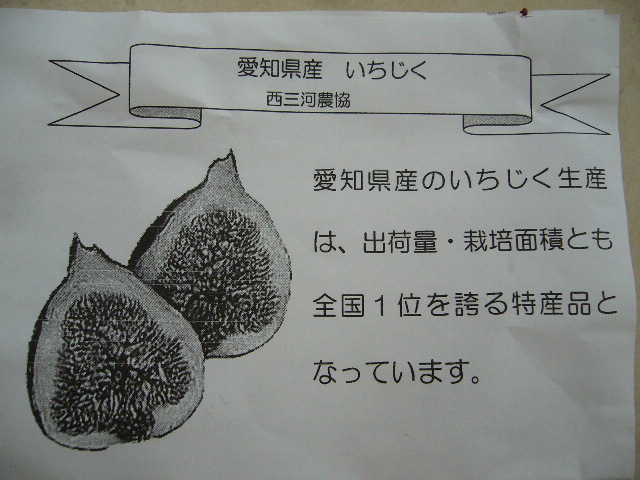 愛知県産　いちじく
西三河農協
愛知県産のいちじく生産
は、出荷量・栽培面積とも
全国１位を誇る特産品と
なっています。